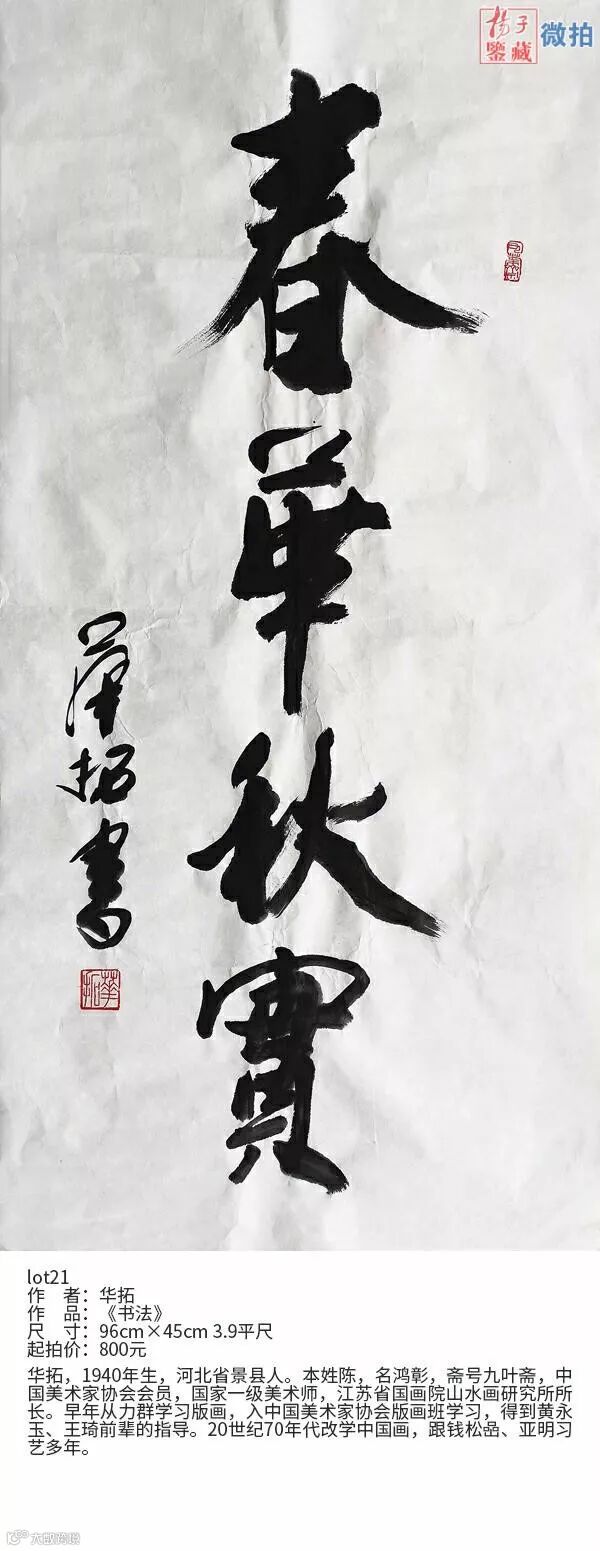 揚子
鑒藏
微拍
春華秋實
華拓書
華拓
lot21
作　者：华拓
作　品：《书法》
尺　寸：96cm×45cm 3.9平尺
起拍价：800元
华拓，1940年生，河北省景县人。本姓陈，名鸿彰，斋号九叶斋，中
国美术家协会会员，国家一级美术师，江苏省国画院山水画研究所所
长。早年从力群学习版画，入中国美术家协会版画班学习，得到黄永
玉、王琦前辈的指导。20世纪70年代改学中国画，跟钱松嵒、亚明习
艺多年。
大数跨境